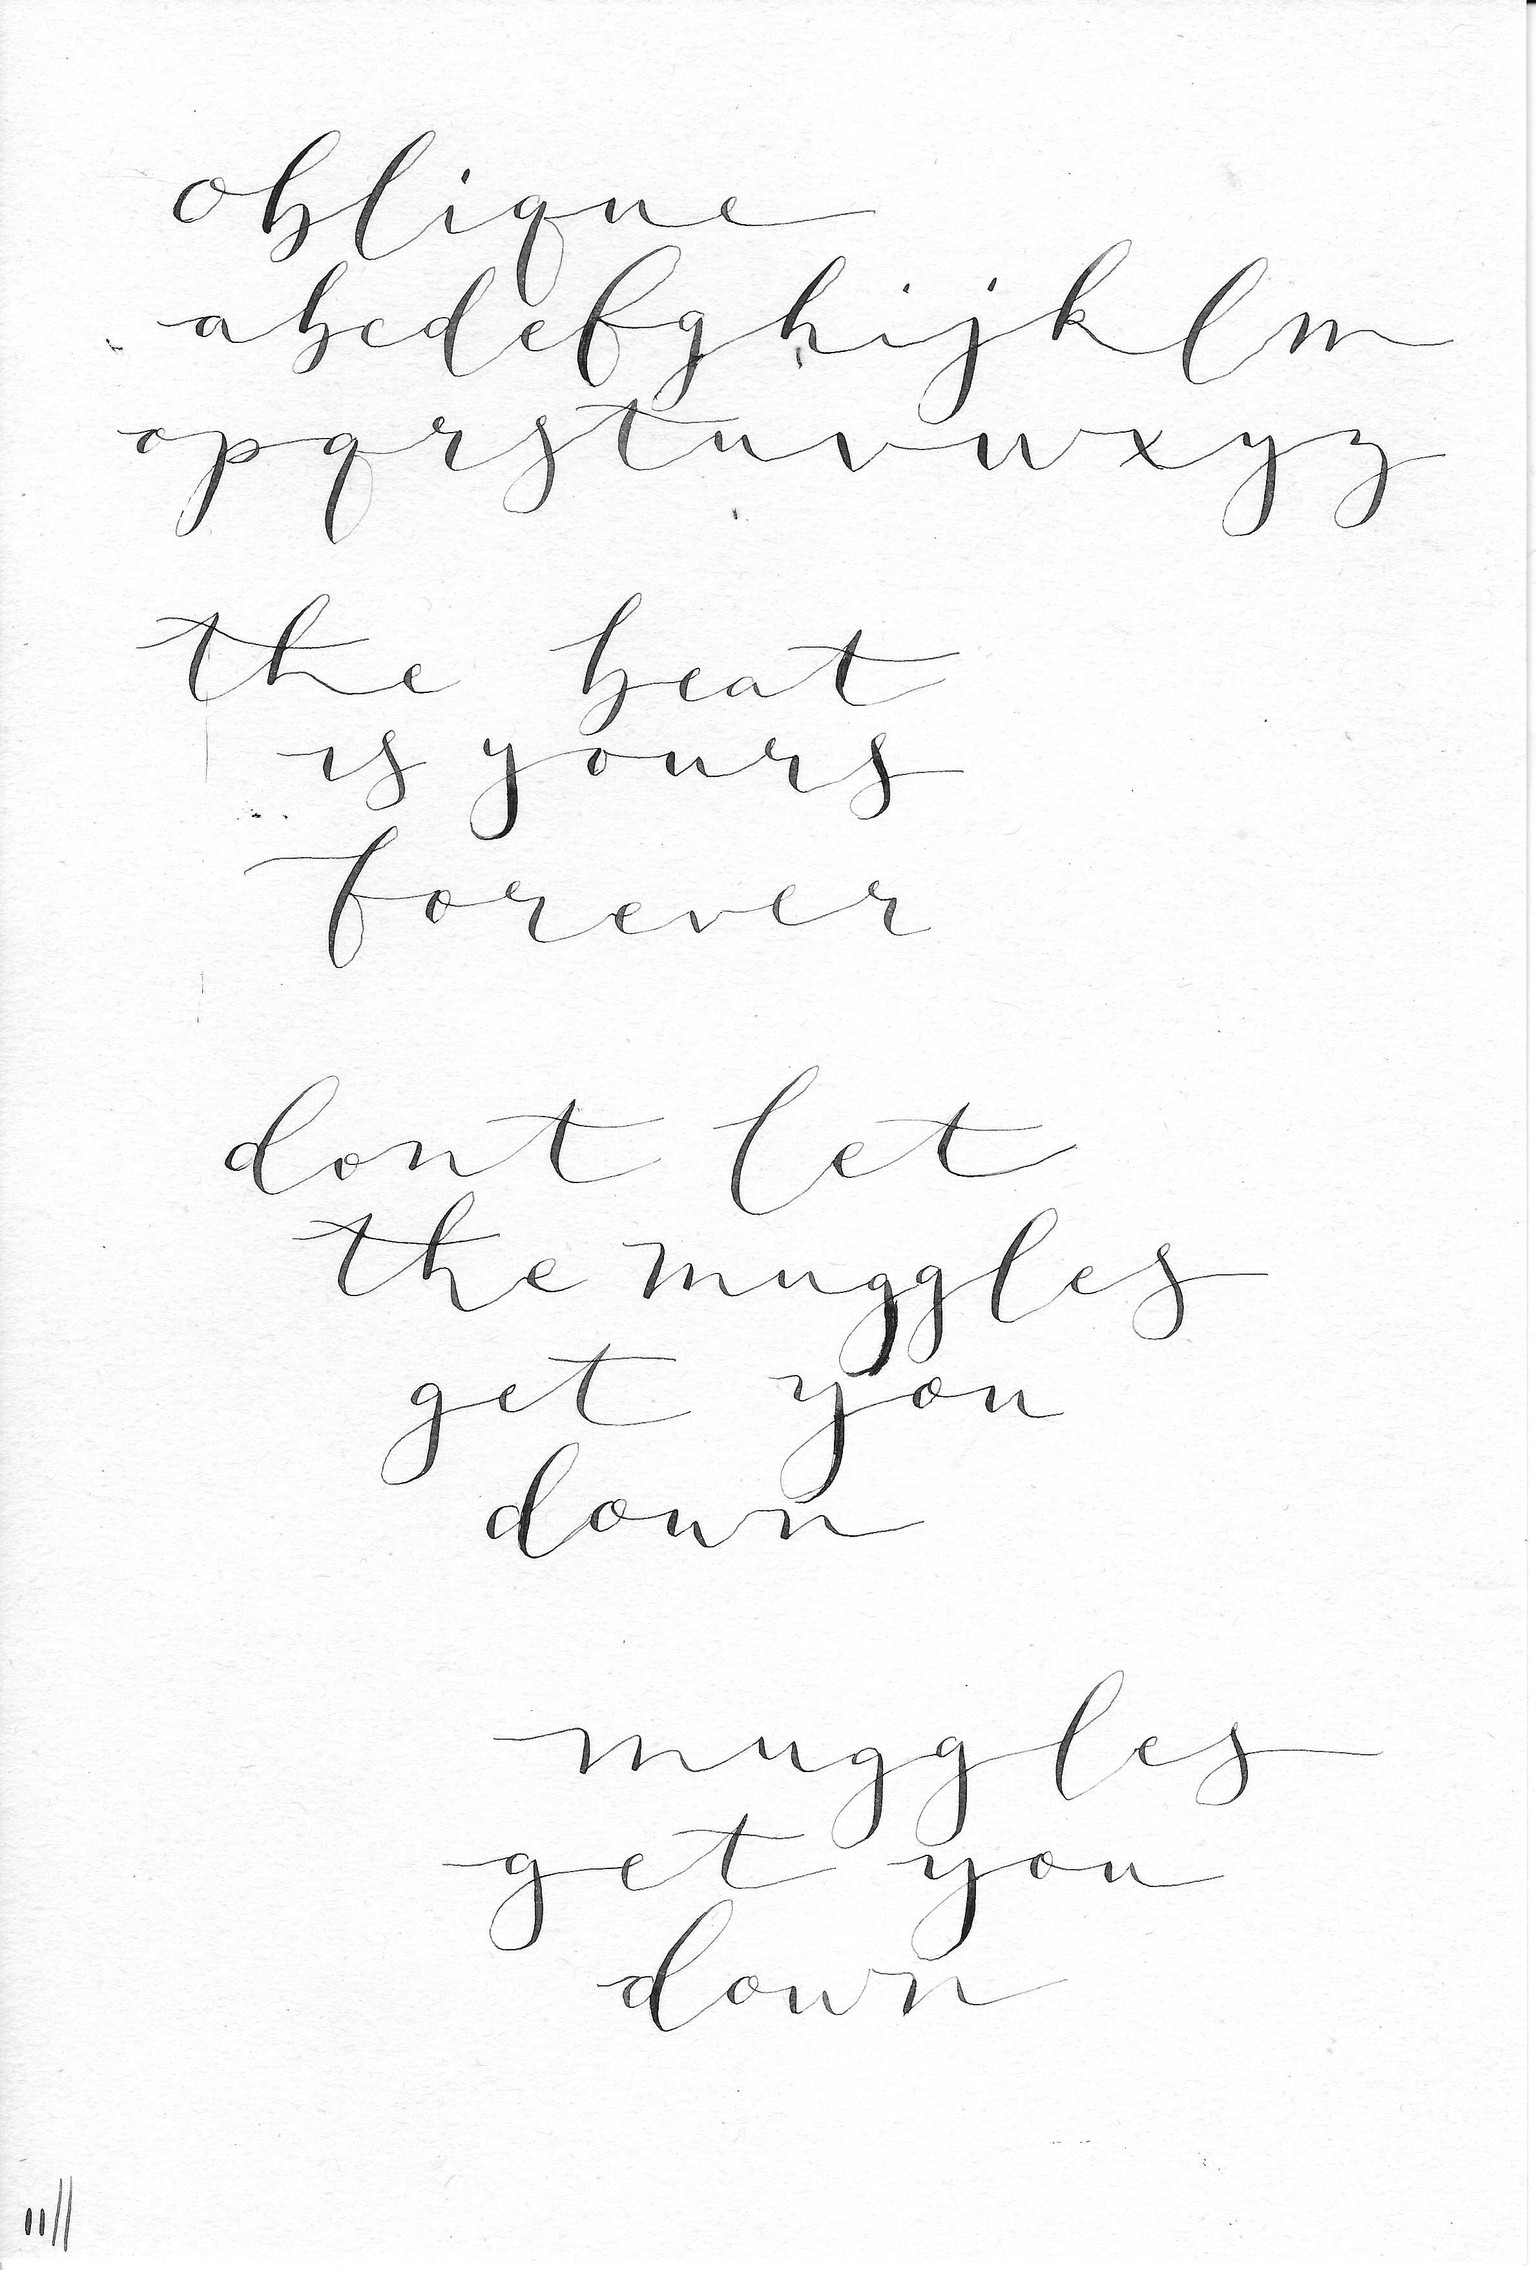 oblique
abcdefghijklm
opqrstuvwxyz
the beat
is yours
forever
dont let
the muggles
get you
down
muggles
get you
down